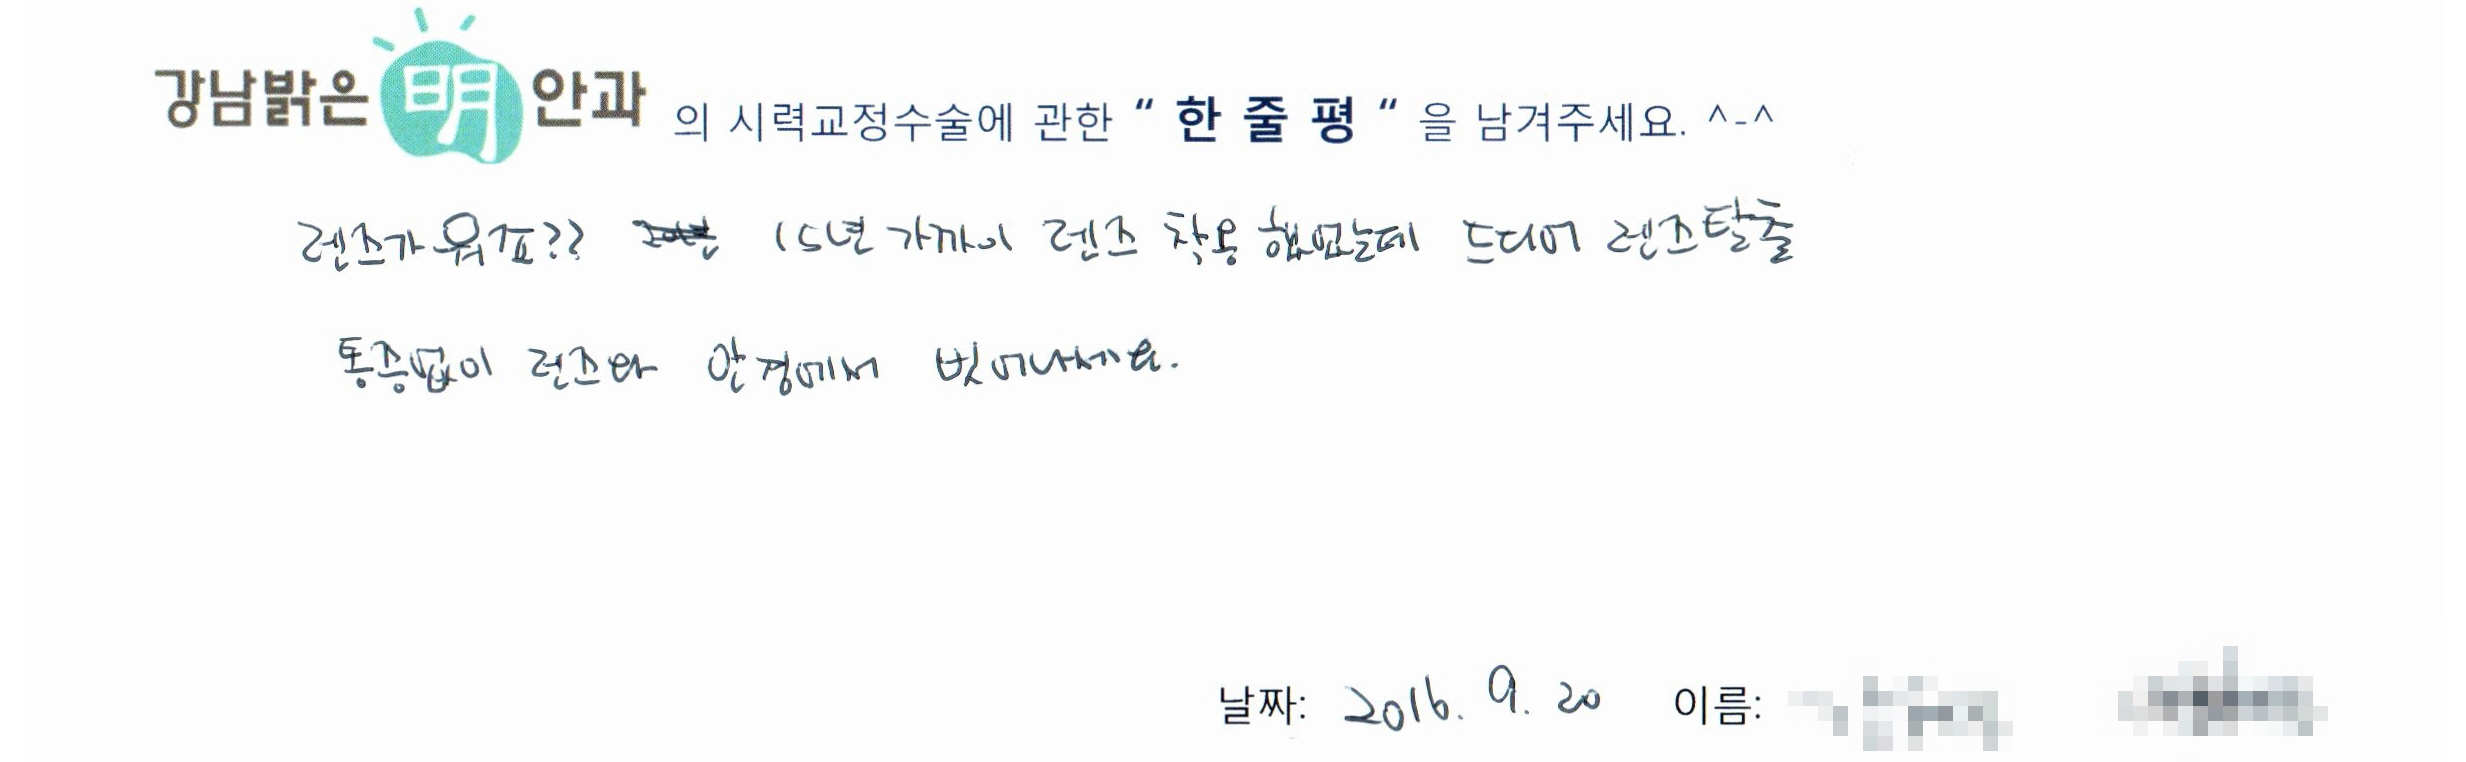 강남밝은明안과 의 시력교정수술에 관한 “ 한 줄 평 “ 을 남겨주세요. ^-^
렌즈가 뭐죠?? 15년 가까이 렌즈 착용 했었는데 드디어 렌즈탈출
통증없이 렌즈와 안경에서 벗어나세요.
날짜: 2016. 9. 20 이름: